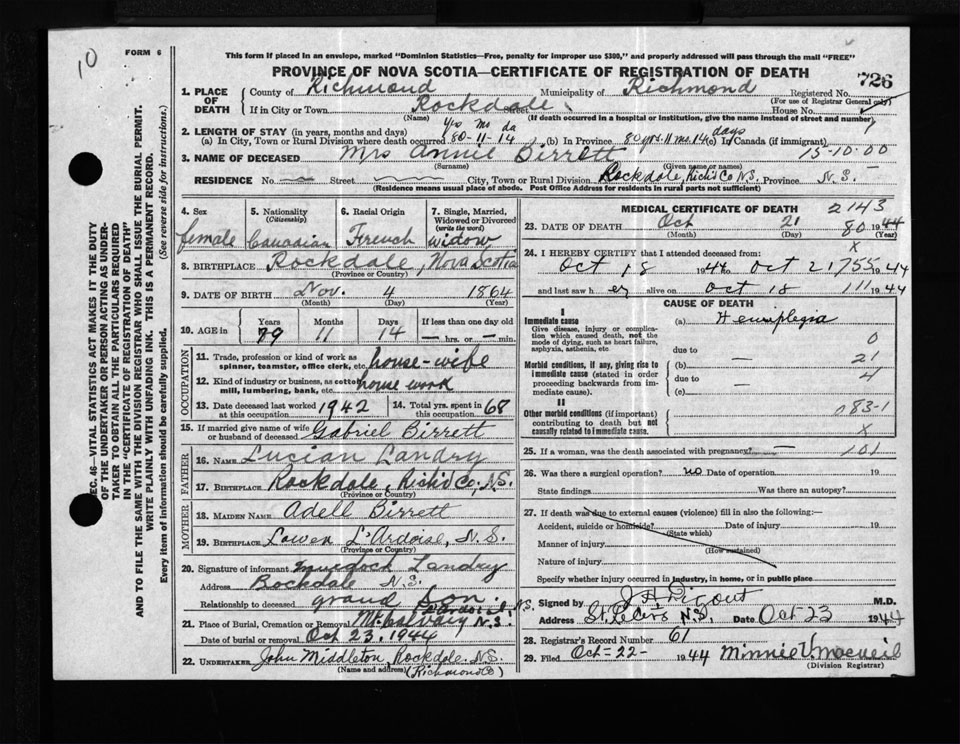 10
FORM 6
This form if placed in an envelope, marked "Dominion Statistics—Free, penalty for improper use $300," and properly addressed will pass through the mail "FREE"
PROVINCE OF NOVA SCOTIA—CERTIFICATE OF REGISTRATION OF DEATH
726
SEC. 46—VITAL STATISTICS ACT MAKES IT THE DUTY
OF THE UNDERTAKER OR PERSON ACTING AS UNDER-
TAKER TO OBTAIN ALL THE PARTICULARS REQUIRED
IN THE "CERTIFICATE OF REGISTRATION OF DEATH"
AND TO FILE THE SAME WITH THE DIVISION REGISTRAR WHO SHALL ISSUE THE BURIAL PERMIT.
WRITE PLAINLY WITH UNFADING INK. THIS IS A PERMANENT RECORD.
Every item of information should be carefully supplied. (See reverse side for instructions.)
1. PLACE OF DEATH
County of Richmond Municipality of Richmond Registered No.
(For use of Registrar General only)
If in City or Town Rockdale Street House No.
(Name) (If death occurred in a hospital or institution, give the name instead of street and number)
2. LENGTH OF STAY (in years, months and days) yrs ms da
(a) In City, Town or Rural Division where death occurred 80-11-14 (b) In Province 80 yrs. 11 ms. 14 days (c) In Canada (if immigrant)
3. NAME OF DECEASED Mrs Annie Birrett 15-10-00
(Surname) (Given name or names)
RESIDENCE No. Street City, Town or Rural Division Rockdale, Rich'd Co N.S. Province N.S.
(Residence means usual place of abode. Post Office Address for residents in rural parts not sufficient)
4. Sex
female
5. Nationality
(Citizenship)
Canadian
6. Racial Origin
French
7. Single, Married,
Widowed or Divorced
(write the word)
widow
8. BIRTHPLACE Rockdale, Nova Scotia
(Province or Country)
9. DATE OF BIRTH Nov. 4 1864
(Month) (Day) (Year)
10. AGE in Years Months Days If less than one day old
79 11 14 hrs. or min.
OCCUPATION
11. Trade, profession or kind of work as
spinner, teamster, office clerk, etc. house-wife
12. Kind of industry or business, as cotton
mill, lumbering, bank, etc. house work
13. Date deceased last worked
at this occupation 1942
14. Total yrs. spent in
this occupation 68
15. If married give name of wife
or husband of deceased Gabriel Birrett
FATHER
16. NAME Lucian Landry
17. BIRTHPLACE Rockdale, Rich'd Co, N.S.
(Province or Country)
MOTHER
18. MAIDEN NAME Adell Birrett
19. BIRTHPLACE Lower L'Ardoise, N.S.
(Province or Country)
20. Signature of informant Murdock Landry
Address Rockdale N.S.
Relationship to deceased grand son
21. Place of Burial, Cremation or Removal Mt. Calvary N.S.
Date of burial or removal Oct 23, 1944
22. UNDERTAKER John Middleton, Rockdale N.S.
(Name and address) (Richmond Co)
MEDICAL CERTIFICATE OF DEATH 2143
23. DATE OF DEATH Oct 21 80 1944
(Month) (Day) (Year)
24. I HEREBY CERTIFY that I attended deceased from: x
Oct 18 1944 to Oct 21 755 1944
and last saw her alive on Oct 18 111 1944
CAUSE OF DEATH
I
Immediate cause
Give disease, injury or complica-
tion which caused death, not the
mode of dying, such as heart failure,
asphyxia, asthenia, etc.
(a) Hemiplegia
0
due to
Morbid conditions, if any, giving rise to
immediate cause (stated in order
proceeding backwards from im-
mediate cause).
(b) 21
due to 4
(c)
II
Other morbid conditions (if important)
contributing to death but not
causally related to immediate cause.
083-1
x
25. If a woman, was the death associated with pregnancy? 101
26. Was there a surgical operation? no Date of operation 19
State findings Was there an autopsy?
27. If death was due to external causes (violence) fill in also the following:—
Accident, suicide or homicide? Date of injury 19
(State which)
Manner of injury
(How sustained)
Nature of injury
Specify whether injury occurred in industry, in home, or in public place
Signed by M.D.
Address St. Peters N.S. Date Oct 23 1944
28. Registrar's Record Number 61
29. Filed Oct-22- 1944 Minnie V. MacNeil
(Division Registrar)